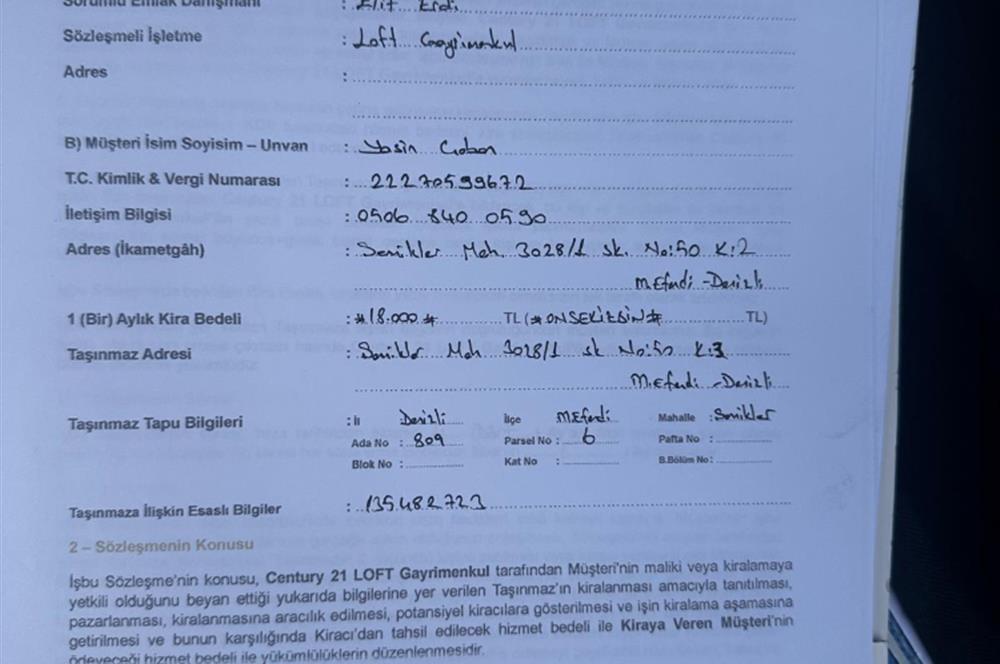 Sorumlu Emlak Danışmanı : Elif Erdi
Sözleşmeli İşletme : Loft Gayrimenkul
Adres :
B) Müşteri İsim Soyisim – Unvan : Yasin Çoban
T.C. Kimlik & Vergi Numarası : 22270599672
İletişim Bilgisi : 0506 840 0590
Adres (İkametgâh) : Semikler Mah. 3028/1 sk. No:50 K:2
M.Efendi - Denizli
1 (Bir) Aylık Kira Bedeli : #18.000# TL (#ONSEKİZBİN# TL)
Taşınmaz Adresi : Semikler Mah 3028/1 sk No:50 K:3
M.Efendi - Denizli
Taşınmaz Tapu Bilgileri : İl Denizli İlçe M.Efendi Mahalle : Semikler
Ada No : 809 Parsel No : 6 Pafta No :
Blok No : Kat No : B.Bölüm No :
Taşınmaza İlişkin Esaslı Bilgiler : 135482723
2 – Sözleşmenin Konusu
İşbu Sözleşme'nin konusu, Century 21 LOFT Gayrimenkul tarafından Müşteri'nin maliki veya kiralamaya
yetkili olduğunu beyan ettiği yukarıda bilgilerine yer verilen Taşınmaz'ın kiralanması amacıyla tanıtılması,
pazarlanması, kiralanmasına aracılık edilmesi, potansiyel kiracılara gösterilmesi ve işin kiralama aşamasına
getirilmesi ve bunun karşılığında Kiracı'dan tahsil edilecek hizmet bedeli ile Kiraya Veren Müşteri'nin
ödeyeceği hizmet bedeli ile yükümlülüklerin düzenlenmesidir.